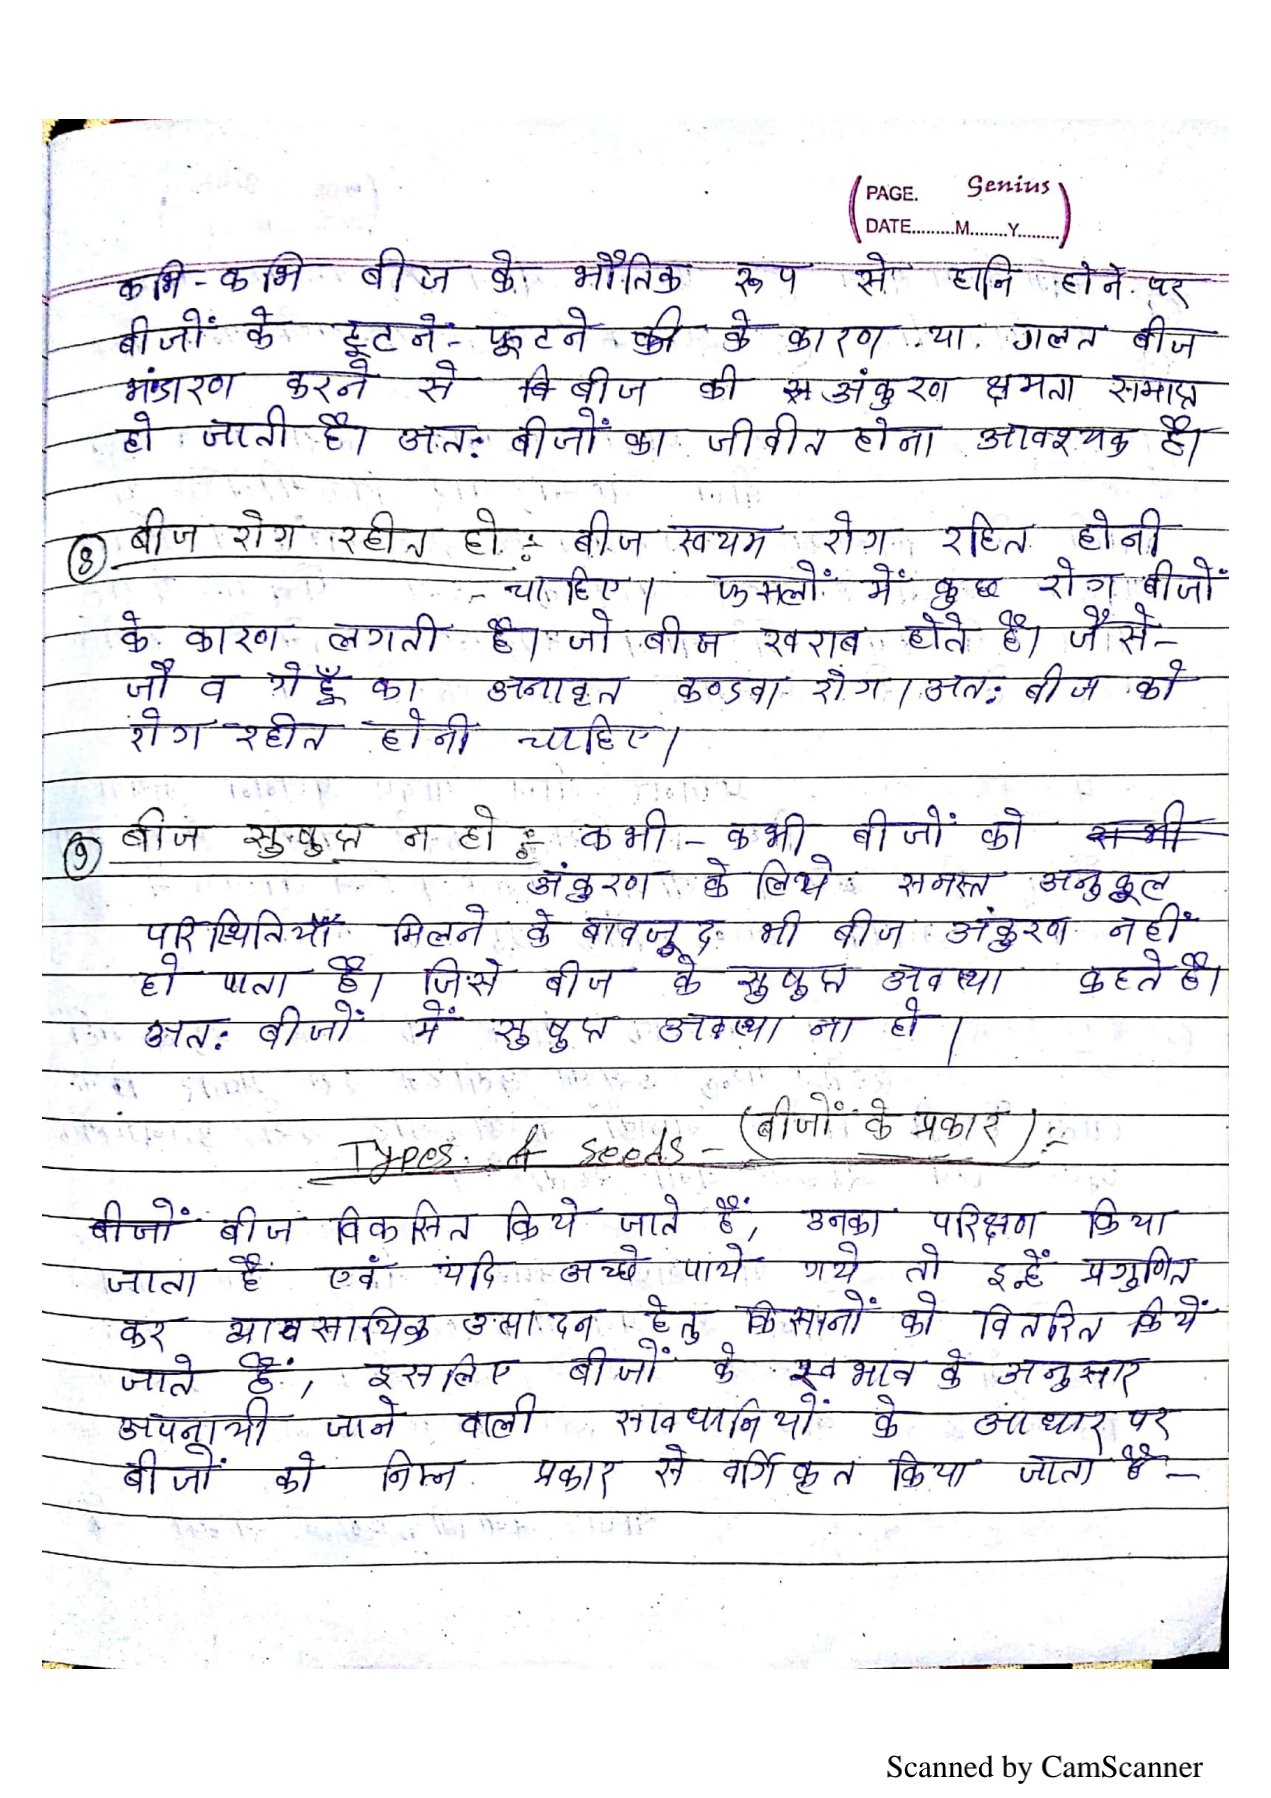 PAGE. Genius
DATE.........M........Y.........
कभि - कभि बीज के भौतिक रूप से हानि होने पर
बीजों के टूटने - फूटने की के कारण या गलत बीज
भंडारण करने से बि बीज की स अंकुरण क्षमता समाप्त
हो जाती है। अतः बीजों का जीवीत होना आवश्यक है।
8 बीज रोग रहीत हो :- बीज स्वयम रोग रहित होनी
चाहिए। फसलों में कुछ रोग बीजों
के कारण लगती है। जो बीज खराब होते है। जैसे-
जौ व गेहूँ का अनावृत कण्डवा रोग। अतः बीज को
रोग रहीत होनी चाहिए।
9 बीज सुषुप्त न हो :- कभी - कभी बीजों को सभी
अंकुरण के लिये समस्त अनुकूल
परिस्थितियाँ मिलने के बावजूद भी बीज अंकुरण नहीं
हो पाता है। जिसे बीज के सुषुप्त अवस्था कहते है।
अतः बीजों में सुषुप्त अवस्था ना हो।
Types of Seeds - (बीजों के प्रकार) :-
बीजों बीज विकसित किये जाते हैं, उनका परिक्षण किया
जाता हैं एवं यदि अच्छे पाये गये तो इन्हें प्रगुणित
कर व्यावसायिक उत्पादन हेतु किसानों को वितरित किये
जाते हैं, इसलिए बीजों के स्वभाव के अनुसार
अपनायी जाने वाली सावधानियों के आधार पर
बीजों को निम्न प्रकार से वर्गिकृत किया जाता है -
Scanned by CamScanner